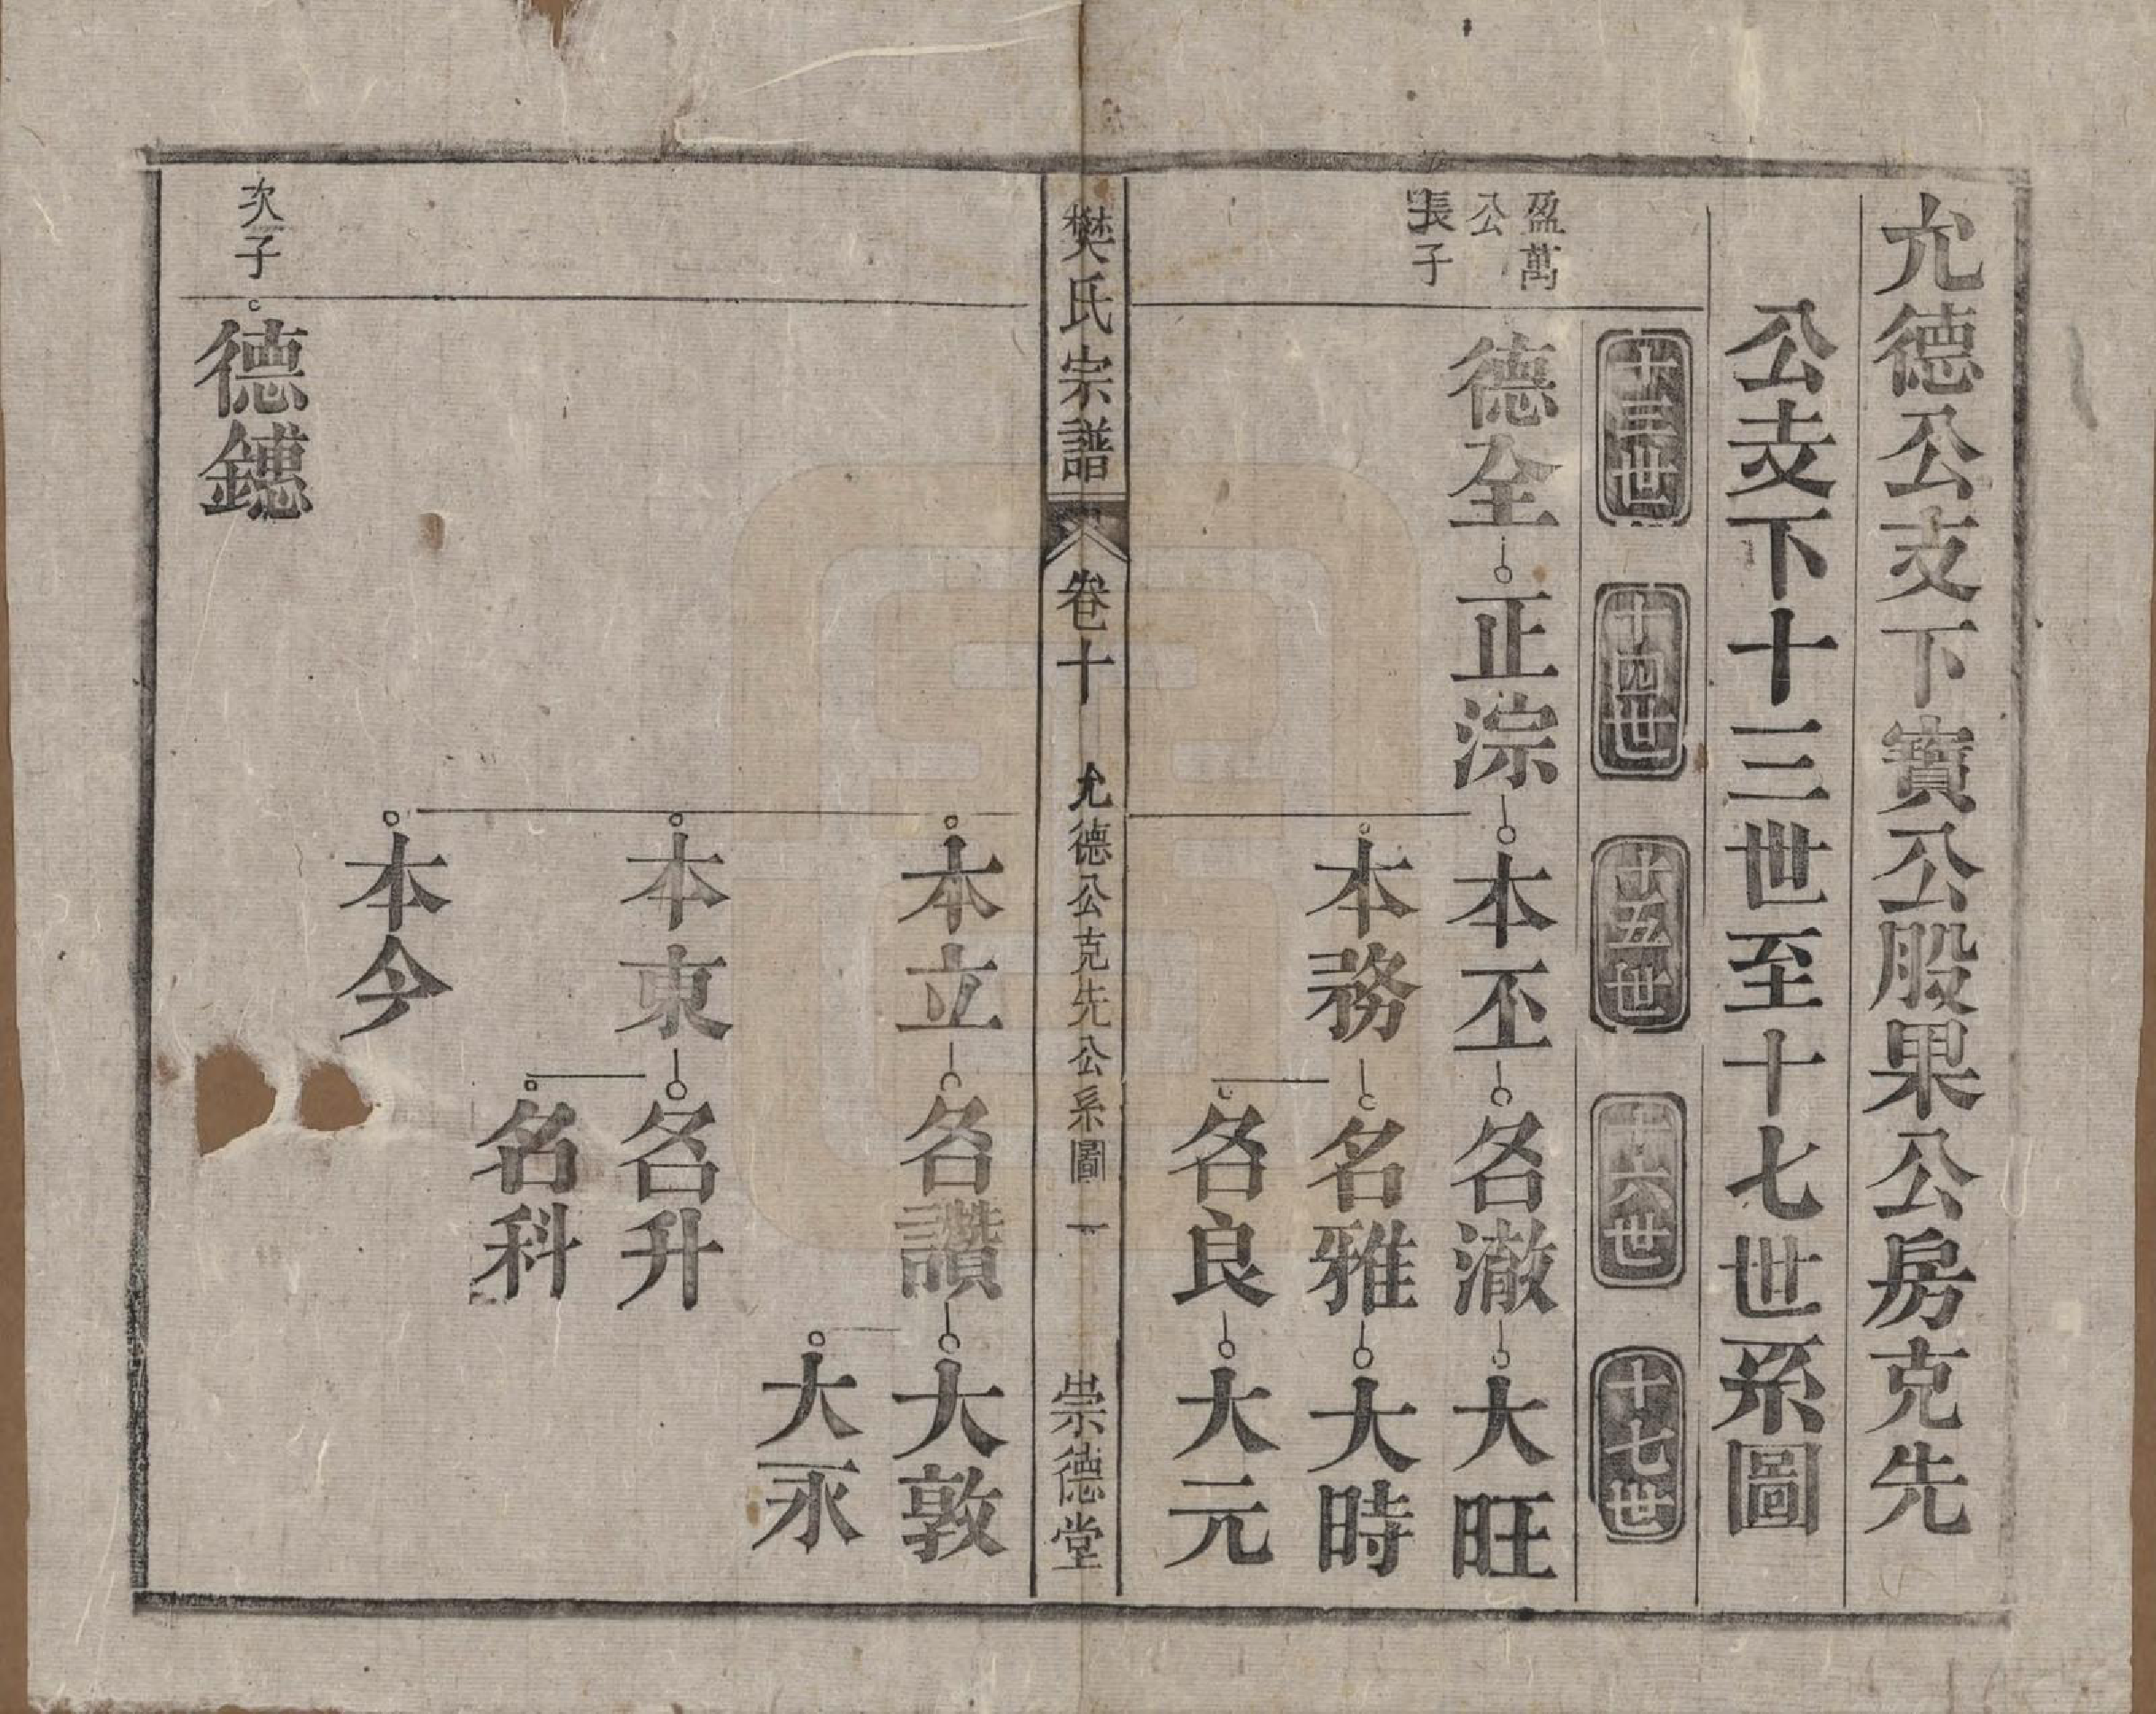 允德公支下寶公股果公房克先
公支下十三世至十七世系圖
十三世
十四世
十五世
十六世
十七世
盈萬
公
長子
德全
正淙
本丕
名澈
大旺
本務
名雅
大時
名良
大元
樊氏宗譜
卷十
允德公克先公系圖
一
崇德堂
本立
名讚
大敦
大永
本東
名升
名科
本今
次子
德鏸